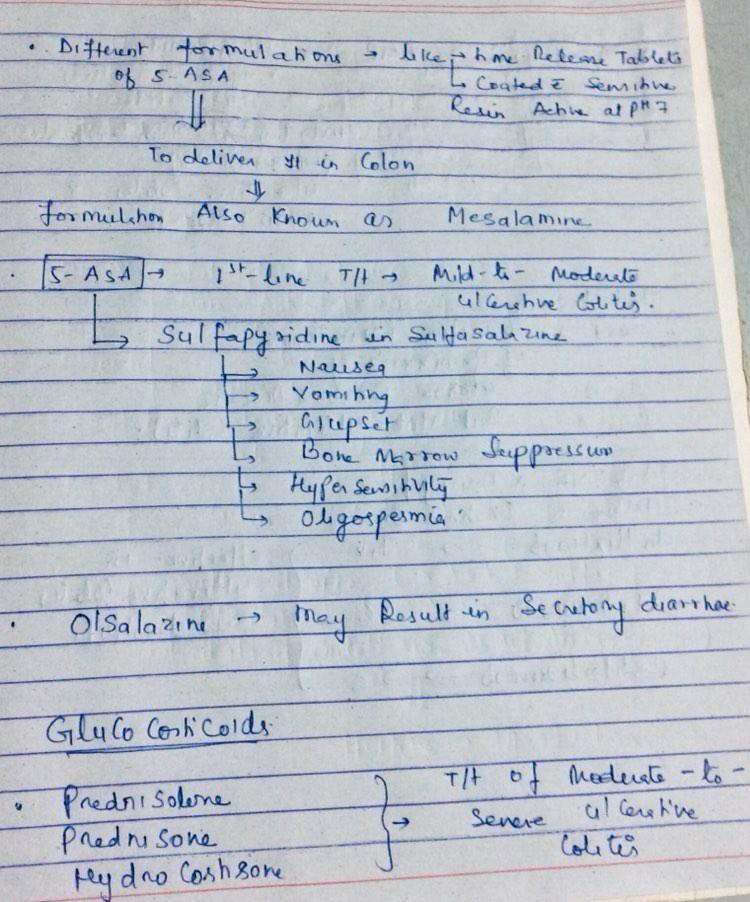 • Different formulations → like → time Release Tablets
of 5-ASA ↳ Coated c̄ Sensitive
Resin Active at pH 7
⇓
To deliver it in Colon
⇓
formulation Also Known as Mesalamine
• 5-ASA → 1st-line T/t → Mild-to-Moderate
Ulcerative Colitis.
↳ Sulfapyridine in Sulfasalazine
→ Nausea
→ Vomiting
→ GI upset
↳ Bone Marrow Suppression
↳ Hypersensitivity
↳ Oligospermia
• Olsalazine → May Result in Secretory diarrhae.
Gluco Corticoids
• Prednisolone T/t of Moderate-to-
Prednisone } → Severe Ulcerative
Hydro Cortisone Colitis